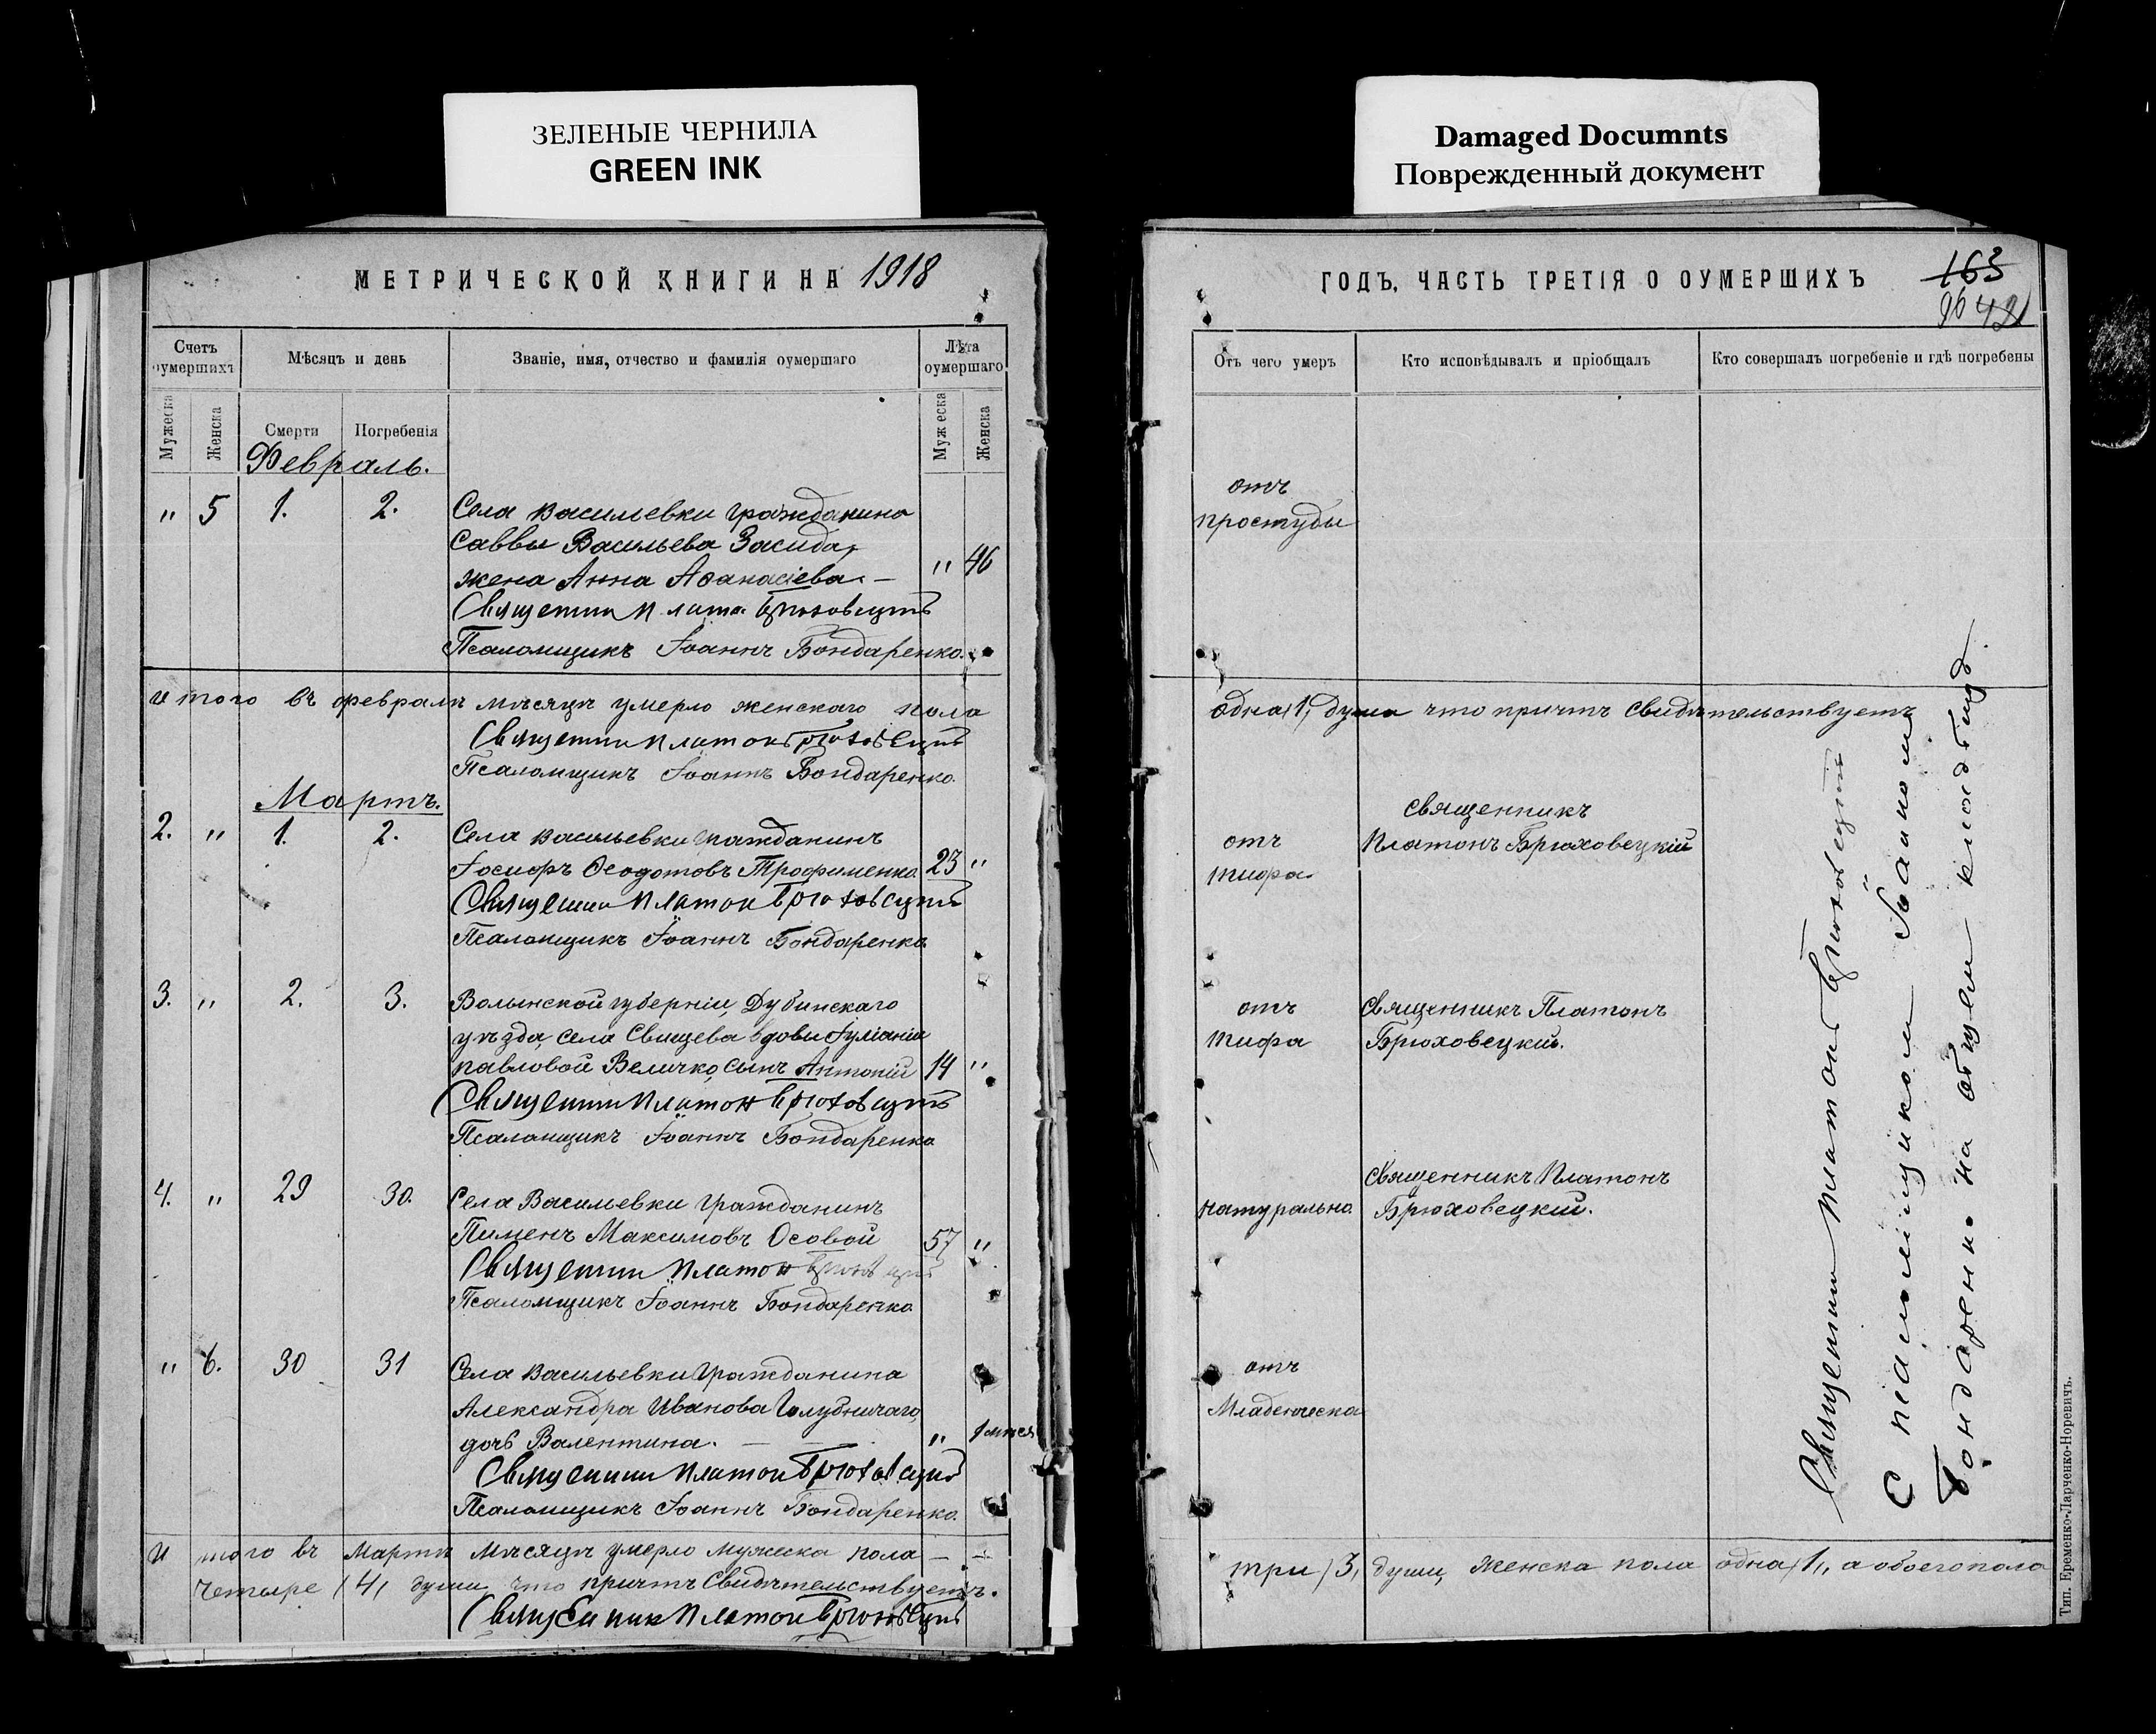 ЗЕЛЕНЫЕ ЧЕРНИЛА
GREEN INK
Damaged Documnts
Поврежденный документ
МЕТРИЧЕСКОЙ КНИГИ НА 1918
Счетъ оумершихъ
Мѣсяцъ и день
Званіе, имя, отчество и фамилія оумершаго
Лѣта оумершаго
Мужеска
Женска
Смерти
Погребенія
Муж еска
Женска
Февраль.
" 5 1. 2. Села Васильевки гражданина
Саввы Васильева Засида,
жена Анна Аѳанасіева. — " 46
Священник Платон Брюховецкій
Псаломщикъ Іоаннъ Бондаренко.
Итого въ февралѣ мѣсяцѣ умерло женскаго пола
Священник Платон Брюховецкій
Псаломщикъ Іоаннъ Бондаренко.
Мартъ.
2. " 1. 2. Села Васильевки гражданинъ
Іосифъ Ѳеодотовъ Трофименко. 23 "
Священник Платон Брюховецкій
Псаломщикъ Іоаннъ Бондаренко
3. " 2. 3. Волынской губерніи, Дубинскаго
уѣзда, села Свищева вдовы Іуліаніи
Павловой Величко, сынъ Антоній 14 "
Священник Платон Брюховецкій
Псаломщикъ Іоаннъ Бондаренко
4. " 29 30. Села Васильевки гражданинъ
Пименъ Максимовъ Осовой 57 "
Священник Платон Брюховецкій
Псаломщикъ Іоаннъ Бондаренко
" 6. 30 31 Села Васильевки гражданина
Александра Иванова Голубничаго,
дочь Валентина. — " 1 мѣся
Священник Платон Брюховецкій
Псаломщикъ Іоаннъ Бондаренко.
Итого въ Мартѣ мѣсяцѣ умерло мужеска пола —
четыре /4/ души, что причтъ свидѣтельствуетъ.
Священник Платон Брюховецкій
ГОДЪ, ЧАСТЬ ТРЕТІЯ О ОУМЕРШИХЪ
163
Отъ чего умеръ
Кто исповѣдывалъ и пріобщалъ
Кто совершалъ погребеніе и гдѣ погребены
отъ
простуды
одна /1/ душа что причтъ свидѣтельствуетъ
священникъ
отъ Платонъ Брюховецкій
тифа
отъ священникъ Платонъ
тифа Брюховецкій.
священникъ Платонъ
натурально. Брюховецкій.
отъ
Младенческа
три /3/ души, женска пола одна /1/, а обоего пола
Священник Платон Брюховецкій
С псаломщиком Іоанном
Бондаренко на общем кладбищѣ.
Тип. Еременко-Ларченко-Норевичъ.